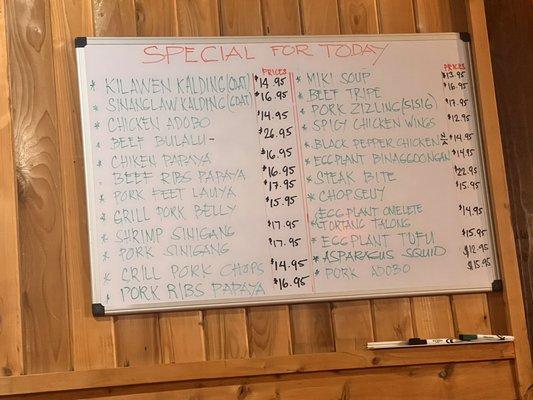 SPECIAL FOR TODAY
PRICES
* KILAWEN KALDING (GOAT) $14.95
SINANGLAW KALDING (GOAT) $16.95
* CHICKEN ADOBO $14.95
* BEEF BULALU- $26.95
* CHIKEN PAPAYA $16.95
BEEF RIBS PAPAYA $16.95
* PORK FEET LAUYA $17.95
* GRILL PORK BELLY $15.95
* SHRIMP SINIGANG $17.95
* PORK SINIGANG $17.95
* GRILL PORK CHOPS $14.95
* PORK RIBS PAPAYA $16.95
PRICES
* MIKI SOUP $13.95
* BEEF TRIPE $16.95
* PORK ZIZLING (SISIG) $17.95
* SPICY CHICKEN WINGS $12.95
* BLACK PEPPER CHICKEN $14.95
* EGGPLANT BINAGGOONGAN $14.95
* STEAK BITE $22.95
* CHOPSEUY $15.95
EGG PLANT OMELETE
* TORTANG TALONG $14.95
* EGGPLANT TUFU $15.95
* ASPARAGUS SQUID $12.95
* PORK ADOBO $15.95